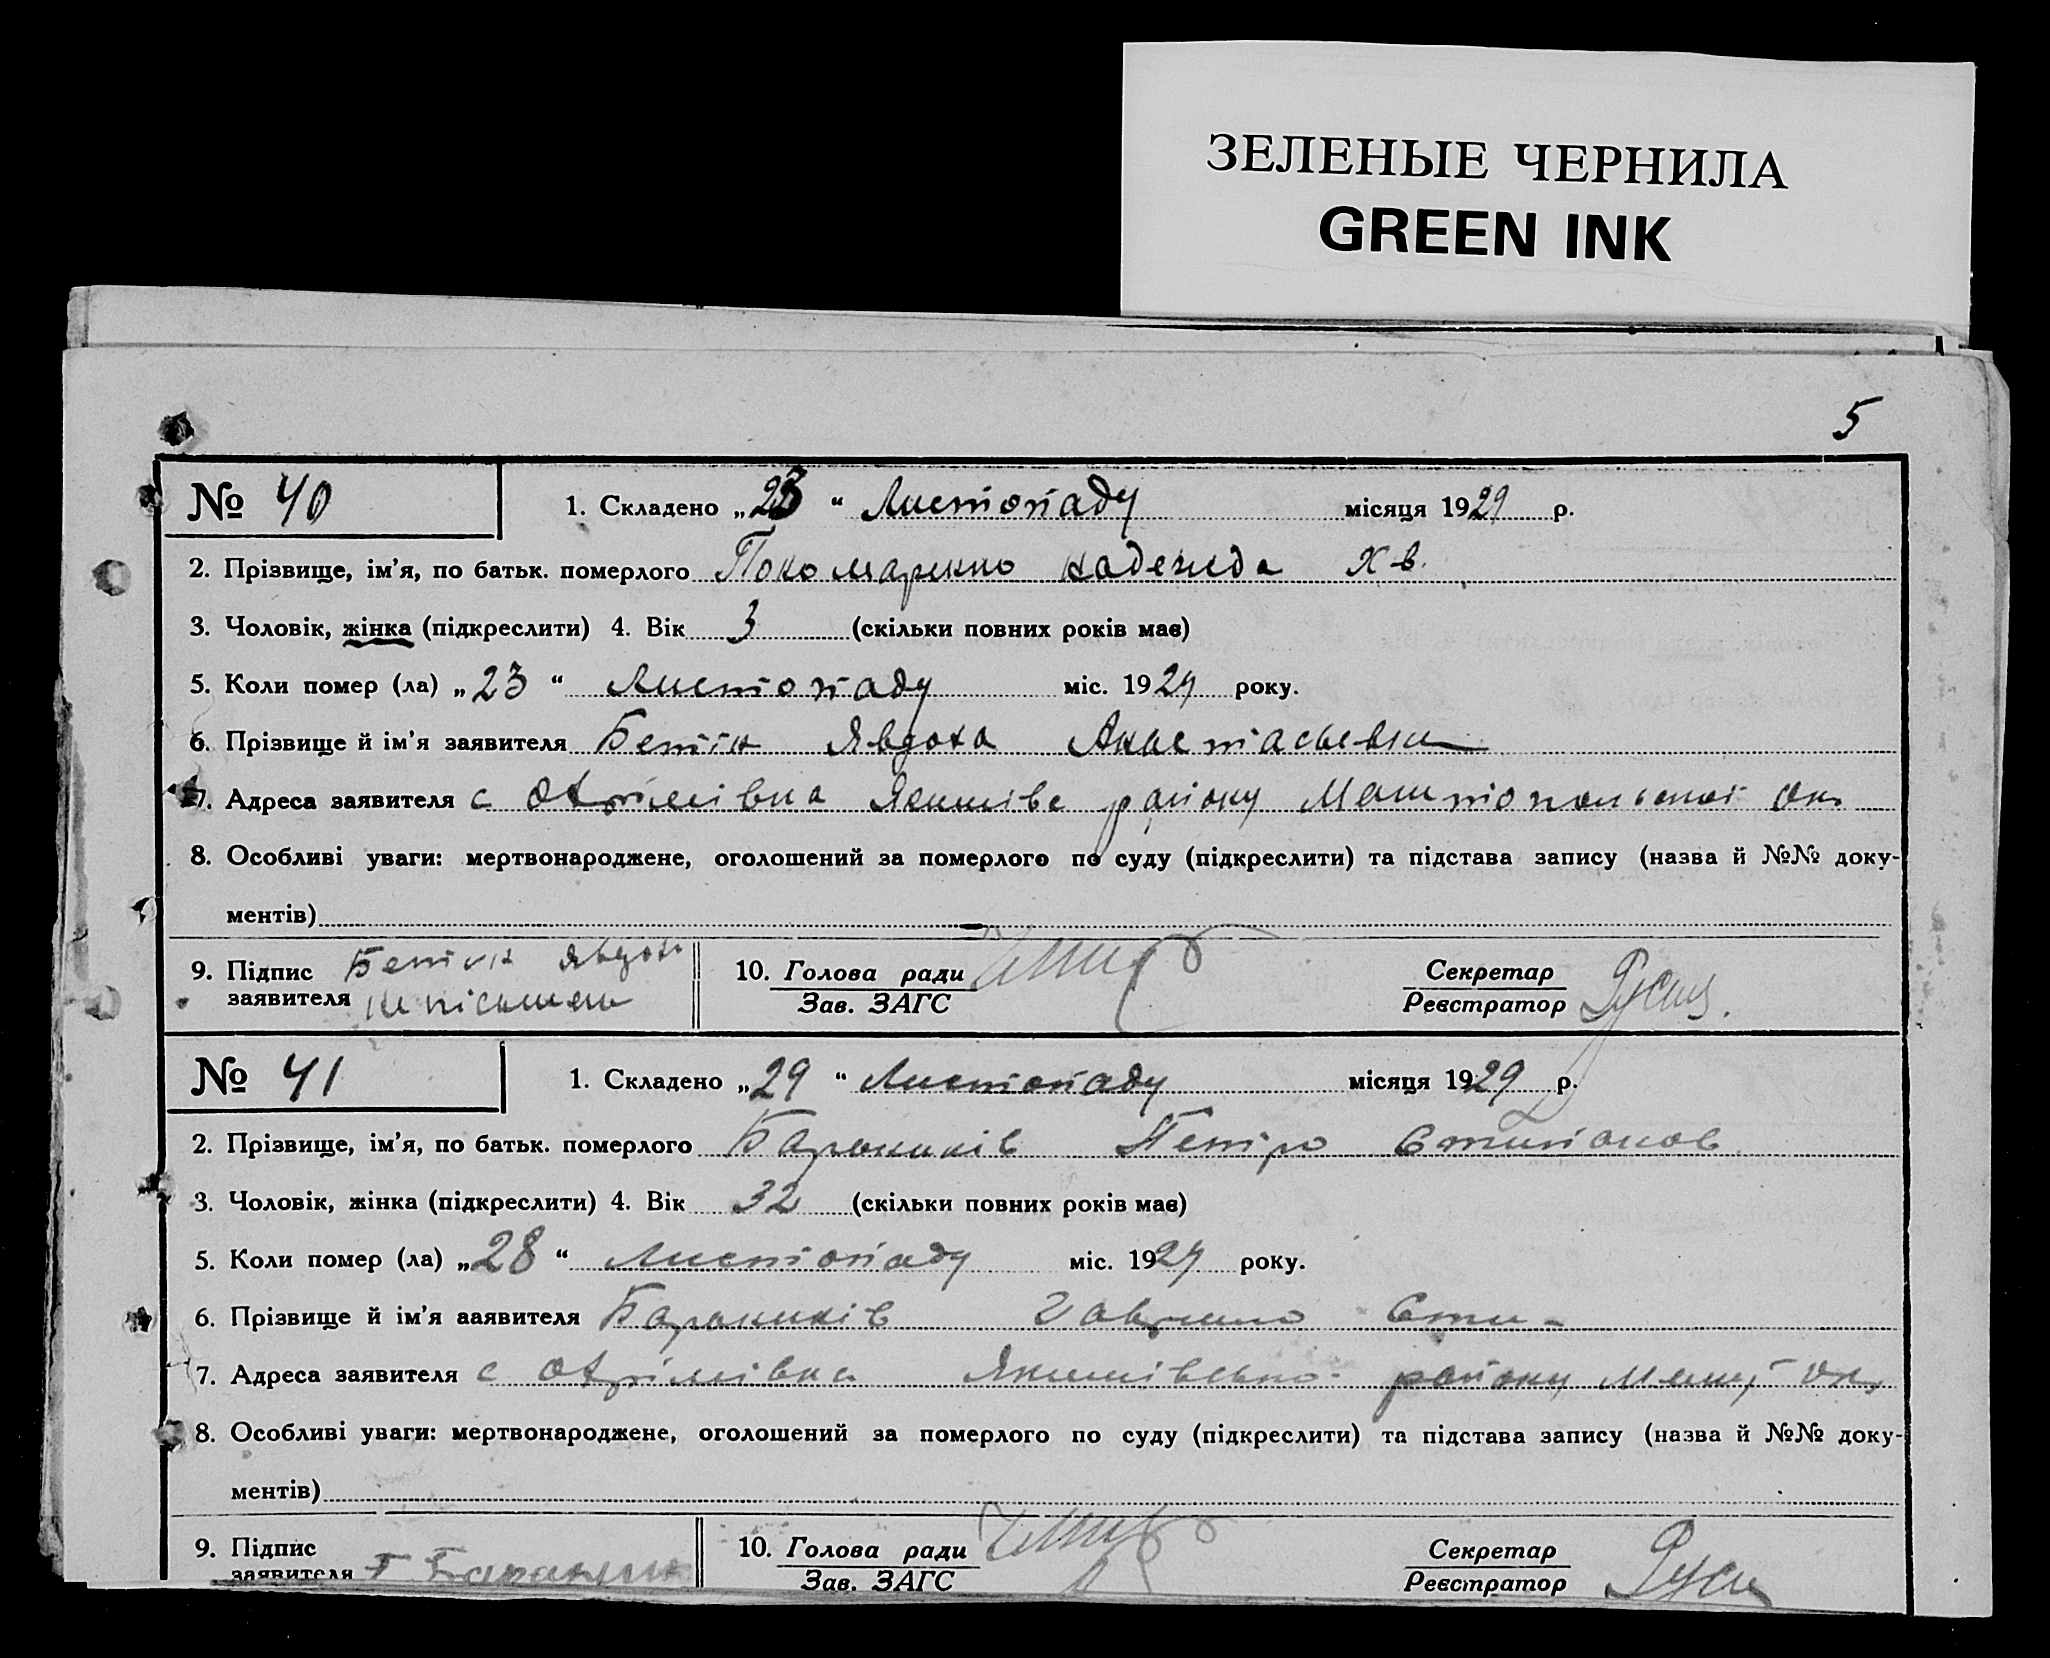 ЗЕЛЕНЫЕ ЧЕРНИЛА
GREEN INK
5
№ 40 1. Складено „23“ Листопаду місяця 1929 р.
2. Прізвище, ім'я, по батьк. померлого Надежда Хв.
3. Чоловік, жінка (підкреслити) 4. Вік 3 (скільки повних років має)
5. Коли помер (ла) „23“ Листопаду міс. 1929 року.
6. Прізвище й ім'я заявителя Явдоха
7. Адреса заявителя с району
8. Особливі уваги: мертвонароджене, оголошений за померлого по суду (підкреслити) та підстава запису (назва й №№ доку-
ментів)
9. Підпис Явдоха 10. Голова ради Секретар
заявителя Зав. ЗАГС Реєстратор
№ 41 1. Складено „29“ Листопаду місяця 1929 р.
2. Прізвище, ім'я, по батьк. померлого Петро
3. Чоловік, жінка (підкреслити) 4. Вік 32 (скільки повних років має)
5. Коли помер (ла) „28“ Листопаду міс. 1929 року.
6. Прізвище й ім'я заявителя
7. Адреса заявителя с району
8. Особливі уваги: мертвонароджене, оголошений за померлого по суду (підкреслити) та підстава запису (назва й №№ доку-
ментів)
9. Підпис 10. Голова ради Секретар
заявителя Зав. ЗАГС Реєстратор